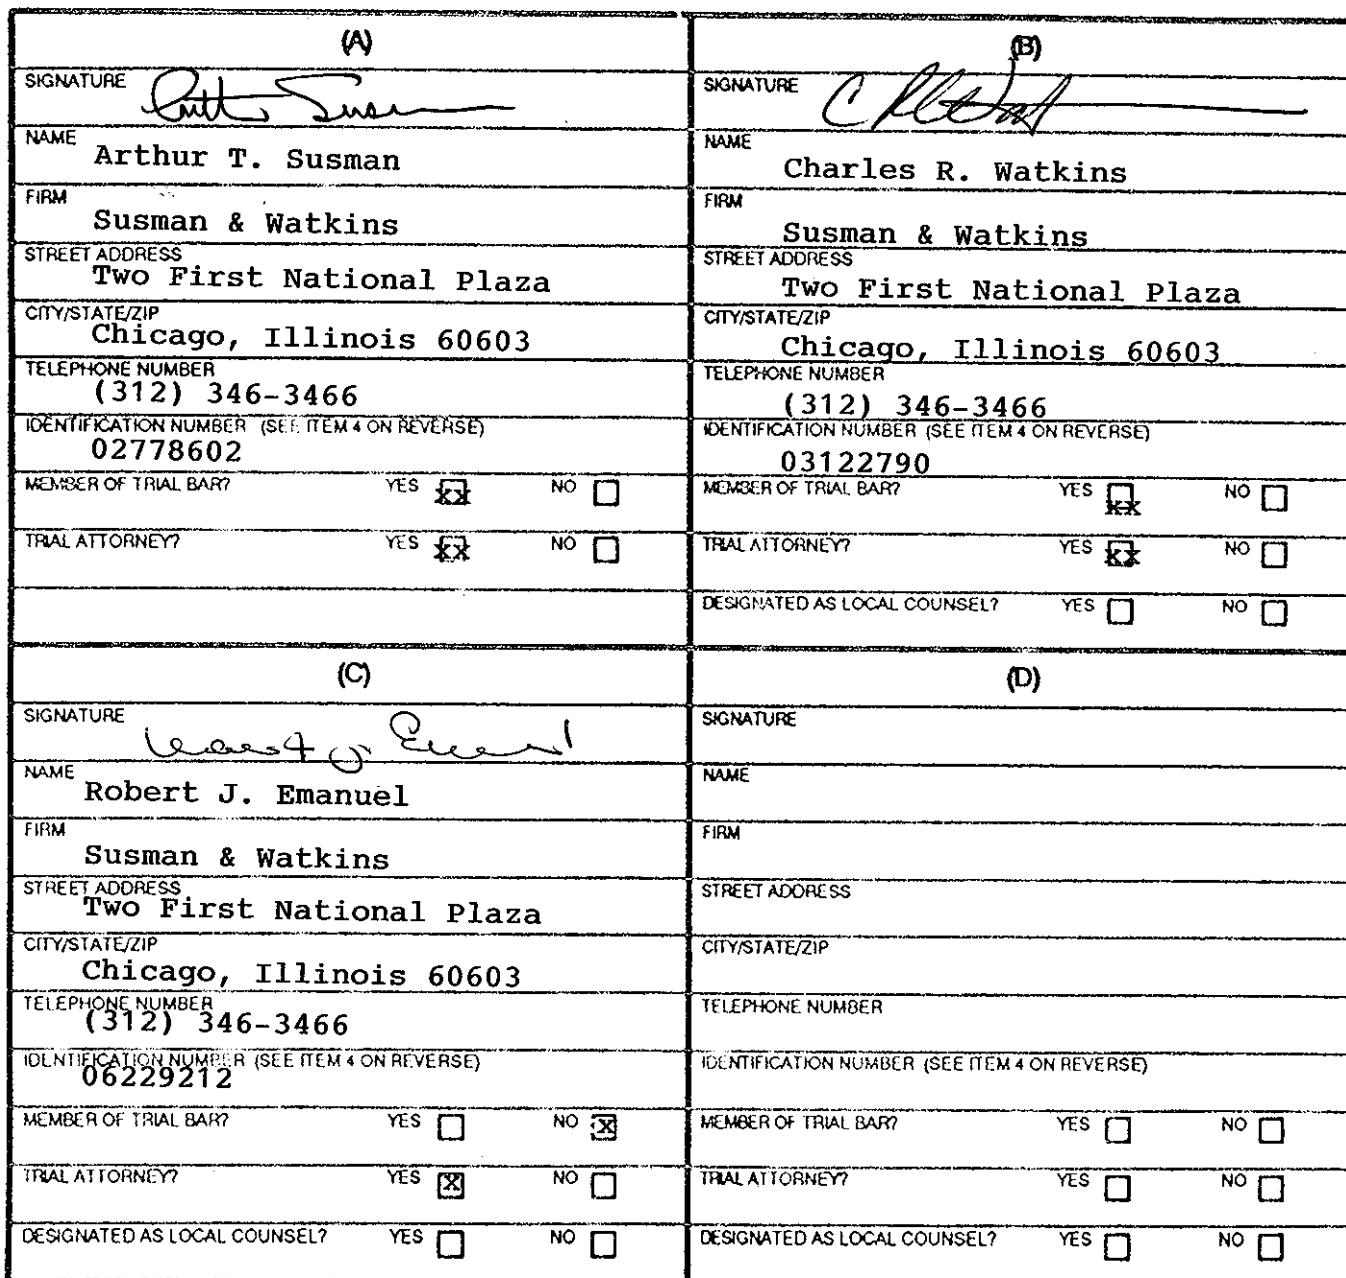 (A)
SIGNATURE
NAME
Arthur T. Susman
FIRM
Susman & Watkins
STREET ADDRESS
Two First National Plaza
CITY/STATE/ZIP
Chicago, Illinois 60603
TELEPHONE NUMBER
(312) 346-3466
IDENTIFICATION NUMBER (SEE ITEM 4 ON REVERSE)
02778602
MEMBER OF TRIAL BAR? YES xx NO
TRIAL ATTORNEY? YES xx NO
(B)
SIGNATURE
NAME
Charles R. Watkins
FIRM
Susman & Watkins
STREET ADDRESS
Two First National Plaza
CITY/STATE/ZIP
Chicago, Illinois 60603
TELEPHONE NUMBER
(312) 346-3466
IDENTIFICATION NUMBER (SEE ITEM 4 ON REVERSE)
03122790
MEMBER OF TRIAL BAR? YES xx NO
TRIAL ATTORNEY? YES xx NO
DESIGNATED AS LOCAL COUNSEL? YES NO
(C)
SIGNATURE
NAME
Robert J. Emanuel
FIRM
Susman & Watkins
STREET ADDRESS
Two First National Plaza
CITY/STATE/ZIP
Chicago, Illinois 60603
TELEPHONE NUMBER
(312) 346-3466
IDENTIFICATION NUMBER (SEE ITEM 4 ON REVERSE)
06229212
MEMBER OF TRIAL BAR? YES NO X
TRIAL ATTORNEY? YES X NO
DESIGNATED AS LOCAL COUNSEL? YES NO
(D)
SIGNATURE
NAME
FIRM
STREET ADDRESS
CITY/STATE/ZIP
TELEPHONE NUMBER
IDENTIFICATION NUMBER (SEE ITEM 4 ON REVERSE)
MEMBER OF TRIAL BAR? YES NO
TRIAL ATTORNEY? YES NO
DESIGNATED AS LOCAL COUNSEL? YES NO